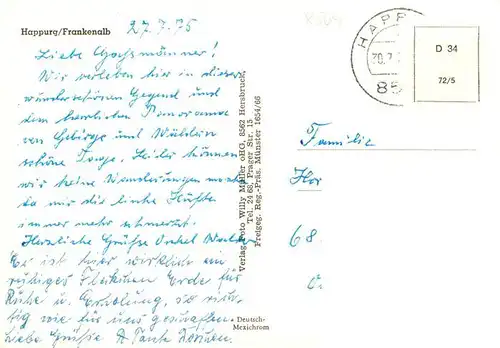 Happurg/Frankenalb
27.7.75
Liebe
Wir verleben hier in dieser
wunderschönen Gegend und
dem herrlichen Panorama
von Gebirge und Wäldern
schöne Tage. Leider können
wir keine Wanderungen machen
da mir die linke Hüfte
immer mehr schmerzt.
Herzliche Grüße Onkel
Es ist hier wirklich ein
ruhiges Fleckchen Erde für
Ruhe u. Erholung, so rich-
tig wie für uns geschaffen.
Liebe Grüße Tante
Verlag Foto Willy Müller oHG, 8562 Hersbruck,
Tel. 24 68, Prager Str. 15
Freigeg. Reg.-Präs. Münster 1654/66
Deutsch-
Mexichrom
HAPP
30.7.
85
D 34
72/5
Familie
Hor
68